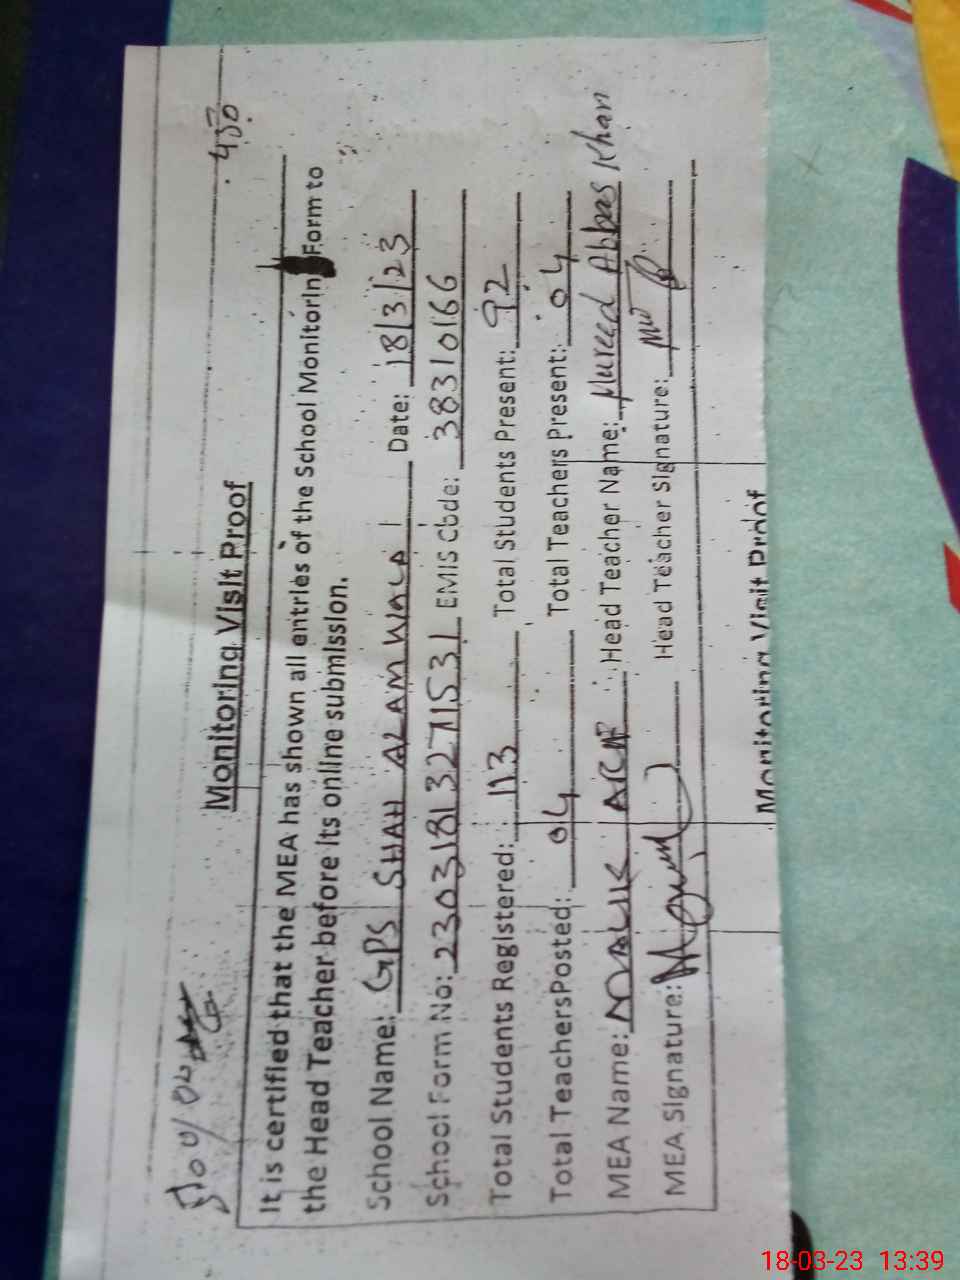 450
Monitoring Visit Proof
It is certified that the MEA has shown all entries of the School Monitorin Form to
the Head Teacher before its online submission.
School Name: GPS SHAH ALAM WALA Date: 18/3/23
School Form No: 23031813271531 EMIS Code: 38310166
Total Students Registered: 113 Total Students Present: 92
Total TeachersPosted: 04 Total Teachers Present: 04
MEA Name: MALIK Head Teacher Name: Mureed Abbas Khan
MEA Signature: Head Teacher Signature:
Monitoring Visit Proof
18-03-23 13:39